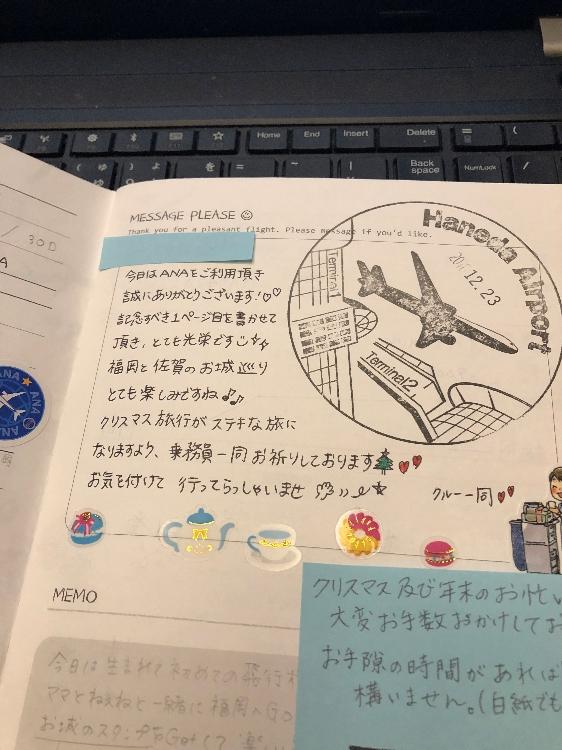 Home End Insert Delete
Back space NumLock
30D
MESSAGE PLEASE
Thank you for a pleasant flight. Please message if you'd like.
Haneda Airport
12.23
Terminal1
Terminal2
今日はANAをご利用頂き
誠にありがとうございます!♡♡
記念すべき1ページ目を書かせて
頂き、とても光栄です
福岡と佐賀のお城巡り
とても楽しみですね♪♪
クリスマス旅行がステキな旅に
なりますよう、乗務員一同お祈りしております
お気を付けて 行ってらっしゃいませ
クルー一同
ANA
MEMO
クリスマス及び年末のお忙し
大変お手数おかけしてお
お手隙の時間があれば
構いません。(白紙でも
今日は生まれて初めての飛行
ママとねぇねと一緒に福岡へGO
お城のスタンプGetして楽し